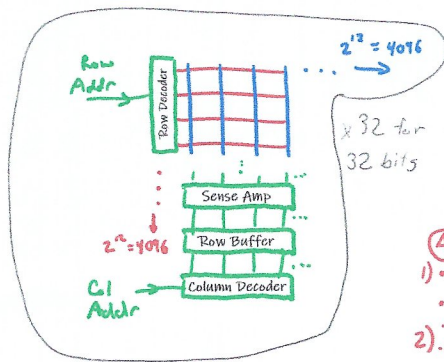 Row
Addr
Row Decoder
2¹² = 4096
x 32 for
32 bits
Sense Amp
2¹² = 4096
Row Buffer
Col
Addr
Column Decoder
1)
2)